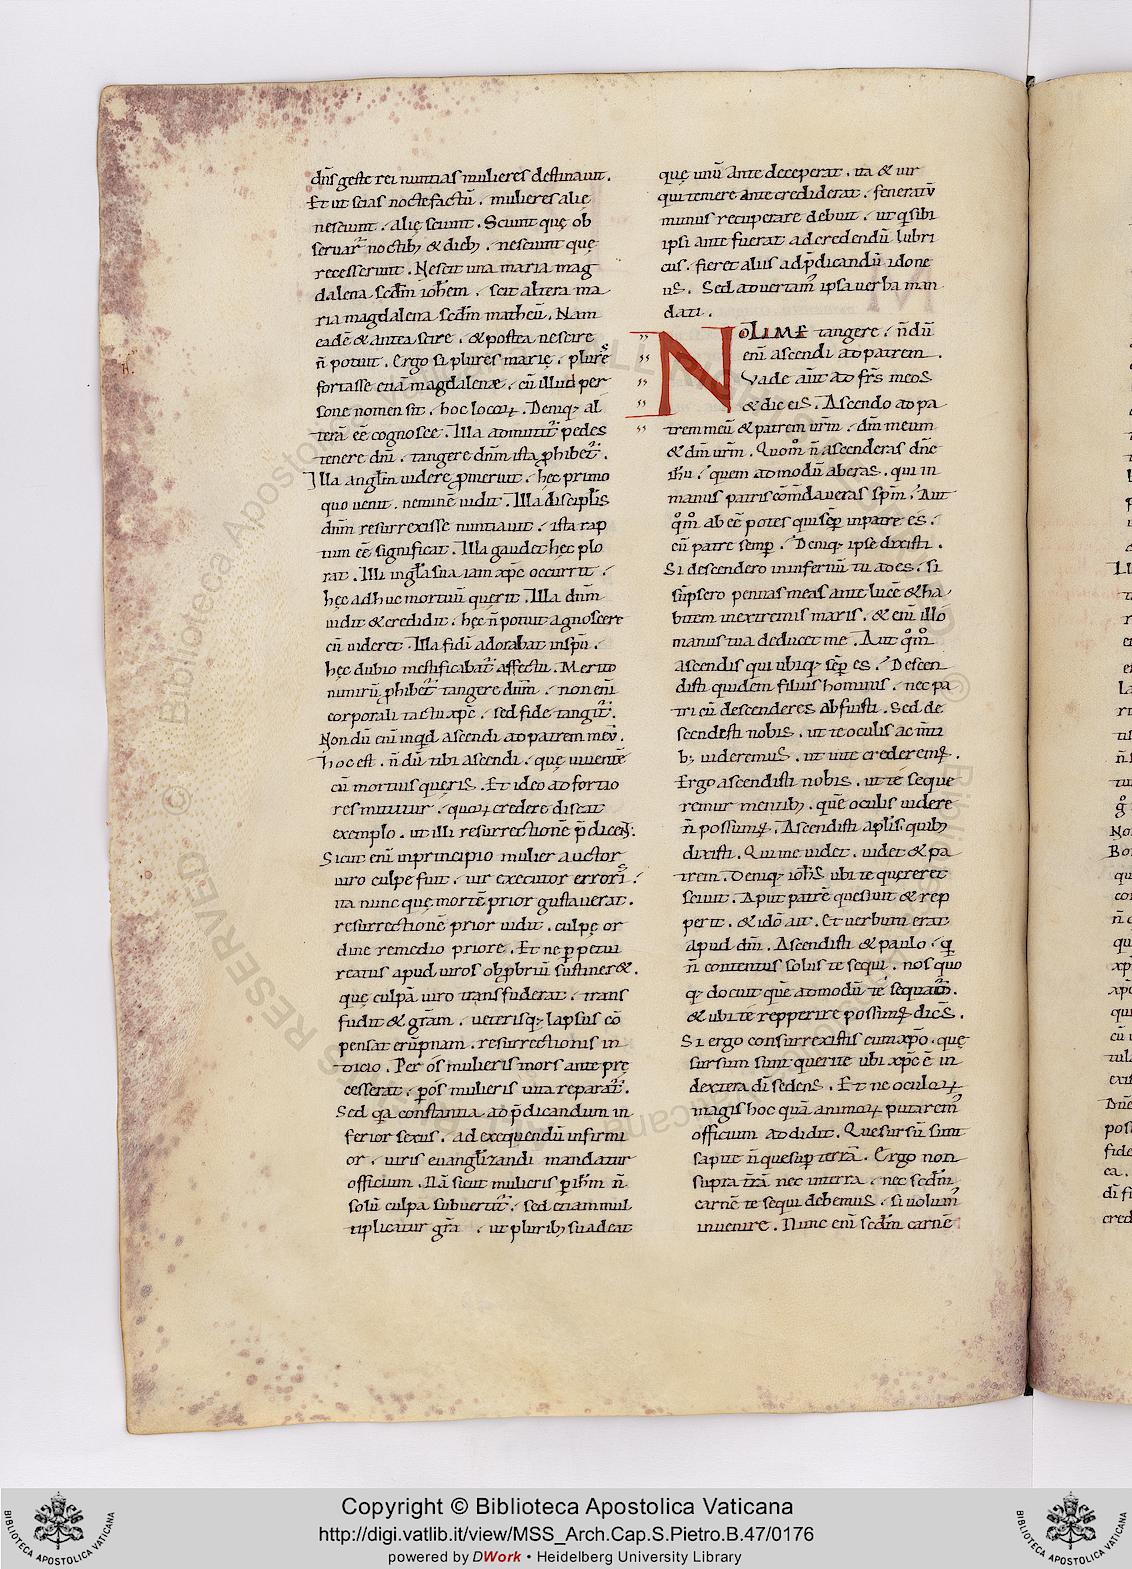 dn̄s geste rei nuntias mulieres destinauit.
Et ut scias nocte factū. mulieres alię
nesciunt. alię sciunt. Sciunt quę ob
seruar̄ noctib; & dieb;. nesciunt quę
recesserunt. Nescit una maria mag
dalena scdm̄ ioh̄em. scit altera ma
ria magdalena scdm̄ matheū. Nam
eadē & antea scire. & postea nescire
n̄ potuit. Ergo si plures marię. plurē
fortasse etiā magdalenæ. cū illud per
sone nomen sit. hoc locoꝝ. Deniq; al
terā eē cognosce. Illa admittit̄ pedes
tenere dn̄i. tangere dn̄m ista ꝓhibet̄.
Illa angl̄m uidere ꝓmeruit. hęc primo
quo uenit. neminē uidit. Illa discipl̄is
dn̄m resurrexisse nuntiauit. ista rap
tum eē significat. Illa gaudet hęc plo
rat. Illi in gl̄a sua iam xp̄c occurrit.
hęc adhuc mortuū querit. Illa dn̄m
uidit & credidit. hęc n̄ potuit agnoscere
cū uideret. Illa fidi adorabat insp̄u.
hęc dubio mestificabat̄ affectu. Merito
nimirū ꝓhibet̄ tangere dn̄m. non enī
corporali tactu xp̄c. sed fide tangit̄.
Non dū enī inqd ascendi ad patrem meū.
hoc est. n̄ dū tibi ascendi. quę uiuentē
cū mortuis quęris. Et ideo ad fortio
res mittitur. quoꝝ credere discat
exemplo. ut illi resurrectionē p̄dicent.
Sicut enī in principio mulier auctor
uiro culpe fuit. uir executor errori.
ita nunc quę mortē prior gustauerat.
resurrectionē prior uidit. culpę or
dine remedio priore. Et ne ꝑpetui
reatus apud uiros obꝓbriū sustiner&.
quę culpā uiro transfuderat. trans
fudit & gr̄am. ueterisq; lapsus cō
pensat erūpnam. resurrectionis in
dicio. Per os mulieris mors ante prę
cesserat. ꝑ os mulieris uita reparat̄.
Sed qa constantia ad p̄dicandum in
ferior sexus. ad exequendū infirmi
or. uiris euangl̄izandi mandatur
officium. Nā sicut mulieris ꝑ ih̄m n̄
solū culpa subuertit̄. sed etiam mul
tiplicatur gr̄a. ut plurib; suadeat
quę unū ante deceperat. ita & uir
qui temere ante crediderat. feneratū
munus recuperare debuit. ut q sibi
ipsi ante fuerat ad credendū lubri
cus. fieret aliis ad p̄dicandū idone
us. Sed aduertam' ipsa uerba man
dati.
NOLI ME tangere. n̄ dū
enī ascendi ad patrem.
Vade aut̄ ad fr̄s meos
& dic eis. Ascendo ad pa
trem meū & patrem ur̄m. dm̄ meum
& dm̄ ur̄m. Quom̊ n̄ ascenderas dn̄e
ih̄u. quem ad modū aberas. qui in
manus patris cōmdaueras sp̄m. Aut
q̊m̊ ab eē potes qui sēp̄ in patre es.
cū patre semꝑ. Deniq; ipse dixisti.
Si descendero in infernū tu ad es. si
sūpsero pennas meas ante lucē & ha
bitem in extremis maris. & enī illo
manus tua deducet me. Aut q̊m̊
ascendis qui ubiq; sēꝑ es. Descen
disti quidem filius hominis. nec pa
tri cū descenderes abfuisti. Sed de
scendesti nobis. ut te oculis ac mti
b; uideremus. ut in te crederem'.
Ergo ascendisti nobis. ut te seque
remur mentib;. quē oculis uidere
n̄ possum'. Ascendisti apl̄is quib;
dixisti. Qui me uidet. uidet & pa
trem. Deniq; ioh̄s ubi te quereret
sciuit. Aput patrē quesiuit & rep
perit. & idō ait. Et uerbum erat
apud dm̄. Ascendisti & paulo. q
n̄ contentus solus te sequi. nos quo
q; docuit quē ad modū te sequam̄.
& ubi te repperire possim' dicēs.
Si ergo consurrexistis cum xp̄o. quę
sursum sunt querite ubi xp̄c ē in
dextera di sedens. Et ne oculoꝝ
magis hoc quā animoꝝ putarem'
officium addidit. Que sursū sunt
sapite n̄ que sup̄ terrā. Ergo non
supra t̄rā nec in terra. nec scdm̄
carnē te sequi debemus. si uolum'
inuenire. Nunc enī scdm̄ carnē
Copyright © Biblioteca Apostolica Vaticana
http://digi.vatlib.it/view/MSS_Arch.Cap.S.Pietro.B.47/0176
powered by DWork • Heidelberg University Library
BIBLIOTECA APOSTOLICA VATICANA
BIBLIOTECA APOSTOLICA VATICANA